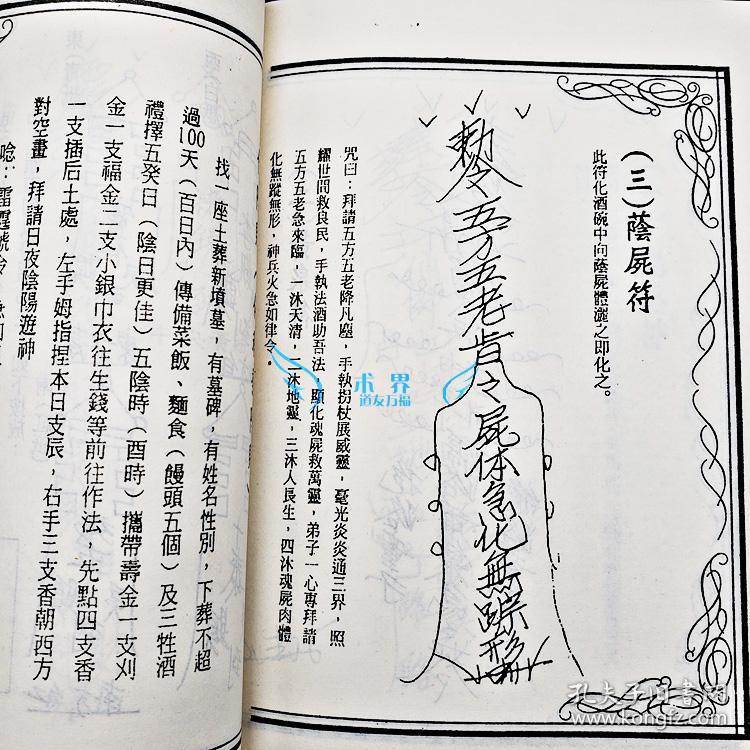 (三)蔭屍符
此符化酒碗中向蔭屍體灑之即化之。
勅令五方五老肯令屍体急化無踪形
咒曰：拜請五方五老降凡塵，手執拐杖展威靈，毫光炎炎通三界，照
耀世間救良民，手執法酒助吾法，顯化魂屍救萬靈，弟子一心專拜請
五方五老急來臨，一沐天清，二沐地靈，三沐人長生，四沐魂屍肉體
化無蹤無形，神兵火急如律令。
找一座土葬新墳墓，有墓碑，有姓名性別，下葬不超
過100天（百日內）傳備菜飯、麵食（饅頭五個）及三牲酒
禮擇五癸日（陰日更佳）五陰時（酉時）攜帶壽金一支刈
金一支福金二支小銀巾衣往生錢等前往作法，先點四支香
一支插后土處，左手姆指捏本日支辰，右手三支香朝西方
對空畫，拜請日夜陰陽遊神
唸：
术界
道友万福
孔夫子旧书网
www.kongfz.com